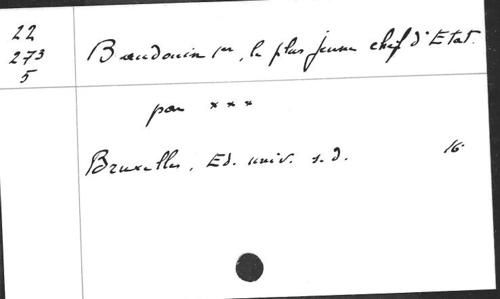 22
273
5
Baudouin 1er, le plus jeune chef d'Etat.
par x x x
Bruxelles, Ed. univ. s.d. 16.